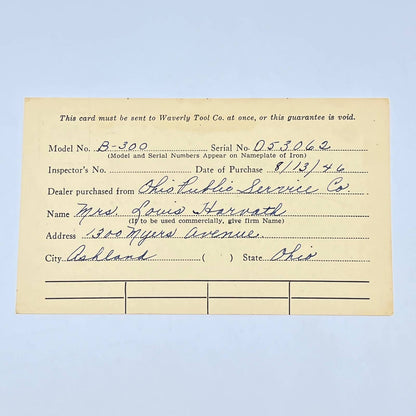 This card must be sent to Waverly Tool Co. at once, or this guarantee is void.
Model No. B-300 Serial No. D53062
(Model and Serial Numbers Appear on Nameplate of Iron)
Inspector's No. Date of Purchase 8/13/46
Dealer purchased from Ohio Public Service Co
Name Mrs. Louis Horvath
(If to be used commercially, give firm Name)
Address 1300 Myers Avenue.
City Ashland ( ) State Ohio